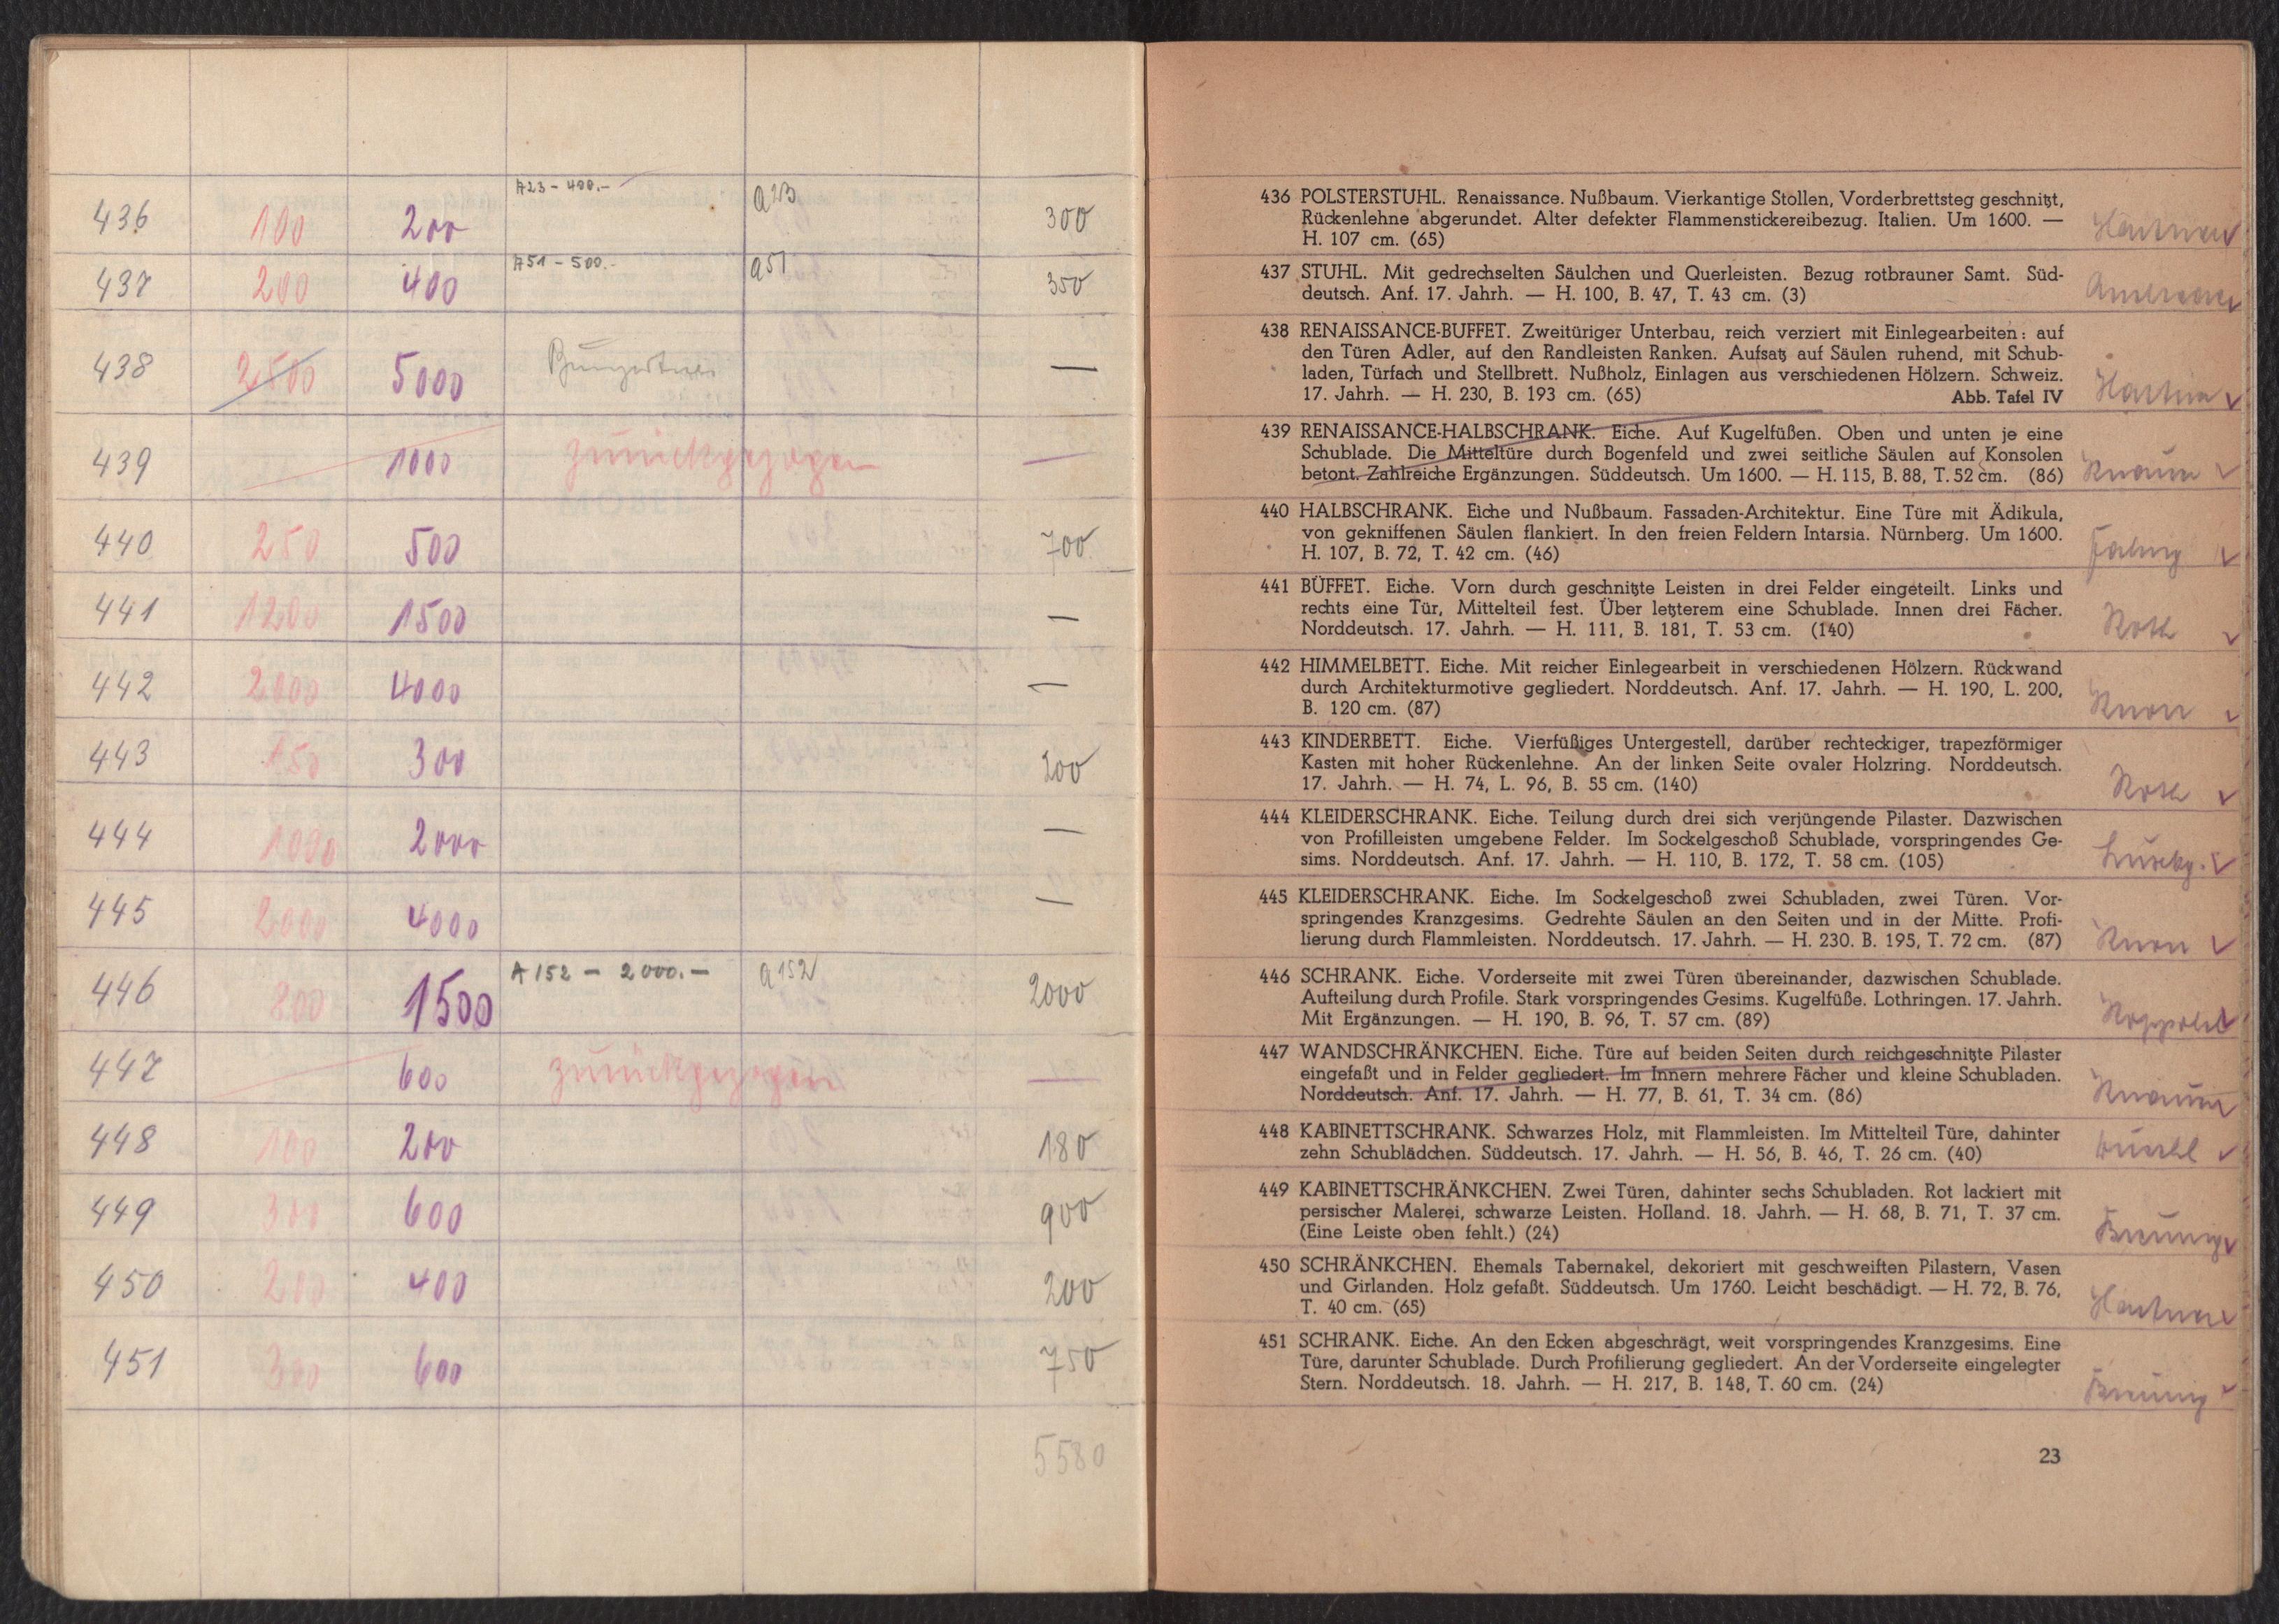 A23 - 400.-
436 100 200 A23 300
A51 - 500.-
437 200 400 A51 350
438 2500 5000 —
439 1000 zurückgezogen —
440 250 500 700
441 1200 1500 —
442 2000 4000 —
443 150 300 200
444 1000 2000 —
445 2000 4000 —
446 800 1500 A 152 - 2000.- A 152 2000
447 600 zurückgezogen —
448 100 200 180
449 300 600 900
450 200 400 200
451 300 600 750
5580
436 POLSTERSTUHL. Renaissance. Nußbaum. Vierkantige Stollen, Vorderbrettsteg geschnitzt,
Rückenlehne abgerundet. Alter defekter Flammenstickereibezug. Italien. Um 1600. —
H. 107 cm. (65)
437 STUHL. Mit gedrechselten Säulchen und Querleisten. Bezug rotbrauner Samt. Süd-
deutsch. Anf. 17. Jahrh. — H. 100, B. 47, T. 43 cm. (3)
438 RENAISSANCE-BUFFET. Zweitüriger Unterbau, reich verziert mit Einlegearbeiten: auf
den Türen Adler, auf den Randleisten Ranken. Aufsatz auf Säulen ruhend, mit Schub-
laden, Türfach und Stellbrett. Nußholz, Einlagen aus verschiedenen Hölzern. Schweiz.
17. Jahrh. — H. 230, B. 193 cm. (65) Abb. Tafel IV
439 RENAISSANCE-HALBSCHRANK. Eiche. Auf Kugelfüßen. Oben und unten je eine
Schublade. Die Mitteltüre durch Bogenfeld und zwei seitliche Säulen auf Konsolen
betont. Zahlreiche Ergänzungen. Süddeutsch. Um 1600. — H. 115, B. 88, T. 52 cm. (86)
440 HALBSCHRANK. Eiche und Nußbaum. Fassaden-Architektur. Eine Türe mit Ädikula,
von gekniffenen Säulen flankiert. In den freien Feldern Intarsia. Nürnberg. Um 1600.
H. 107, B. 72, T. 42 cm. (46)
441 BÜFFET. Eiche. Vorn durch geschnitzte Leisten in drei Felder eingeteilt. Links und
rechts eine Tür, Mittelteil fest. Über letzterem eine Schublade. Innen drei Fächer.
Norddeutsch. 17. Jahrh. — H. 111, B. 181, T. 53 cm. (140)
Roth
442 HIMMELBETT. Eiche. Mit reicher Einlegearbeit in verschiedenen Hölzern. Rückwand
durch Architekturmotive gegliedert. Norddeutsch. Anf. 17. Jahrh. — H. 190, L. 200,
B. 120 cm. (87)
443 KINDERBETT. Eiche. Vierfüßiges Untergestell, darüber rechteckiger, trapezförmiger
Kasten mit hoher Rückenlehne. An der linken Seite ovaler Holzring. Norddeutsch.
17. Jahrh. — H. 74, L. 96, B. 55 cm. (140)
Roth
444 KLEIDERSCHRANK. Eiche. Teilung durch drei sich verjüngende Pilaster. Dazwischen
von Profilleisten umgebene Felder. Im Sockelgeschoß Schublade, vorspringendes Ge-
sims. Norddeutsch. Anf. 17. Jahrh. — H. 110, B. 172, T. 58 cm. (105)
445 KLEIDERSCHRANK. Eiche. Im Sockelgeschoß zwei Schubladen, zwei Türen. Vor-
springendes Kranzgesims. Gedrehte Säulen an den Seiten und in der Mitte. Profi-
lierung durch Flammleisten. Norddeutsch. 17. Jahrh. — H. 230. B. 195, T. 72 cm. (87)
446 SCHRANK. Eiche. Vorderseite mit zwei Türen übereinander, dazwischen Schublade.
Aufteilung durch Profile. Stark vorspringendes Gesims. Kugelfüße. Lothringen. 17. Jahrh.
Mit Ergänzungen. — H. 190, B. 96, T. 57 cm. (89)
447 WANDSCHRÄNKCHEN. Eiche. Türe auf beiden Seiten durch reichgeschnitzte Pilaster
eingefaßt und in Felder gegliedert. Im Innern mehrere Fächer und kleine Schubladen.
Norddeutsch. Anf. 17. Jahrh. — H. 77, B. 61, T. 34 cm. (86)
448 KABINETTSCHRANK. Schwarzes Holz, mit Flammleisten. Im Mittelteil Türe, dahinter
zehn Schublädchen. Süddeutsch. 17. Jahrh. — H. 56, B. 46, T. 26 cm. (40)
449 KABINETTSCHRÄNKCHEN. Zwei Türen, dahinter sechs Schubladen. Rot lackiert mit
persischer Malerei, schwarze Leisten. Holland. 18. Jahrh. — H. 68, B. 71, T. 37 cm.
(Eine Leiste oben fehlt.) (24)
Breunig
450 SCHRÄNKCHEN. Ehemals Tabernakel, dekoriert mit geschweiften Pilastern, Vasen
und Girlanden. Holz gefaßt. Süddeutsch. Um 1760. Leicht beschädigt. — H. 72, B. 76,
T. 40 cm. (65)
451 SCHRANK. Eiche. An den Ecken abgeschrägt, weit vorspringendes Kranzgesims. Eine
Türe, darunter Schublade. Durch Profilierung gegliedert. An der Vorderseite eingelegter
Stern. Norddeutsch. 18. Jahrh. — H. 217, B. 148, T. 60 cm. (24)
Breunig
23